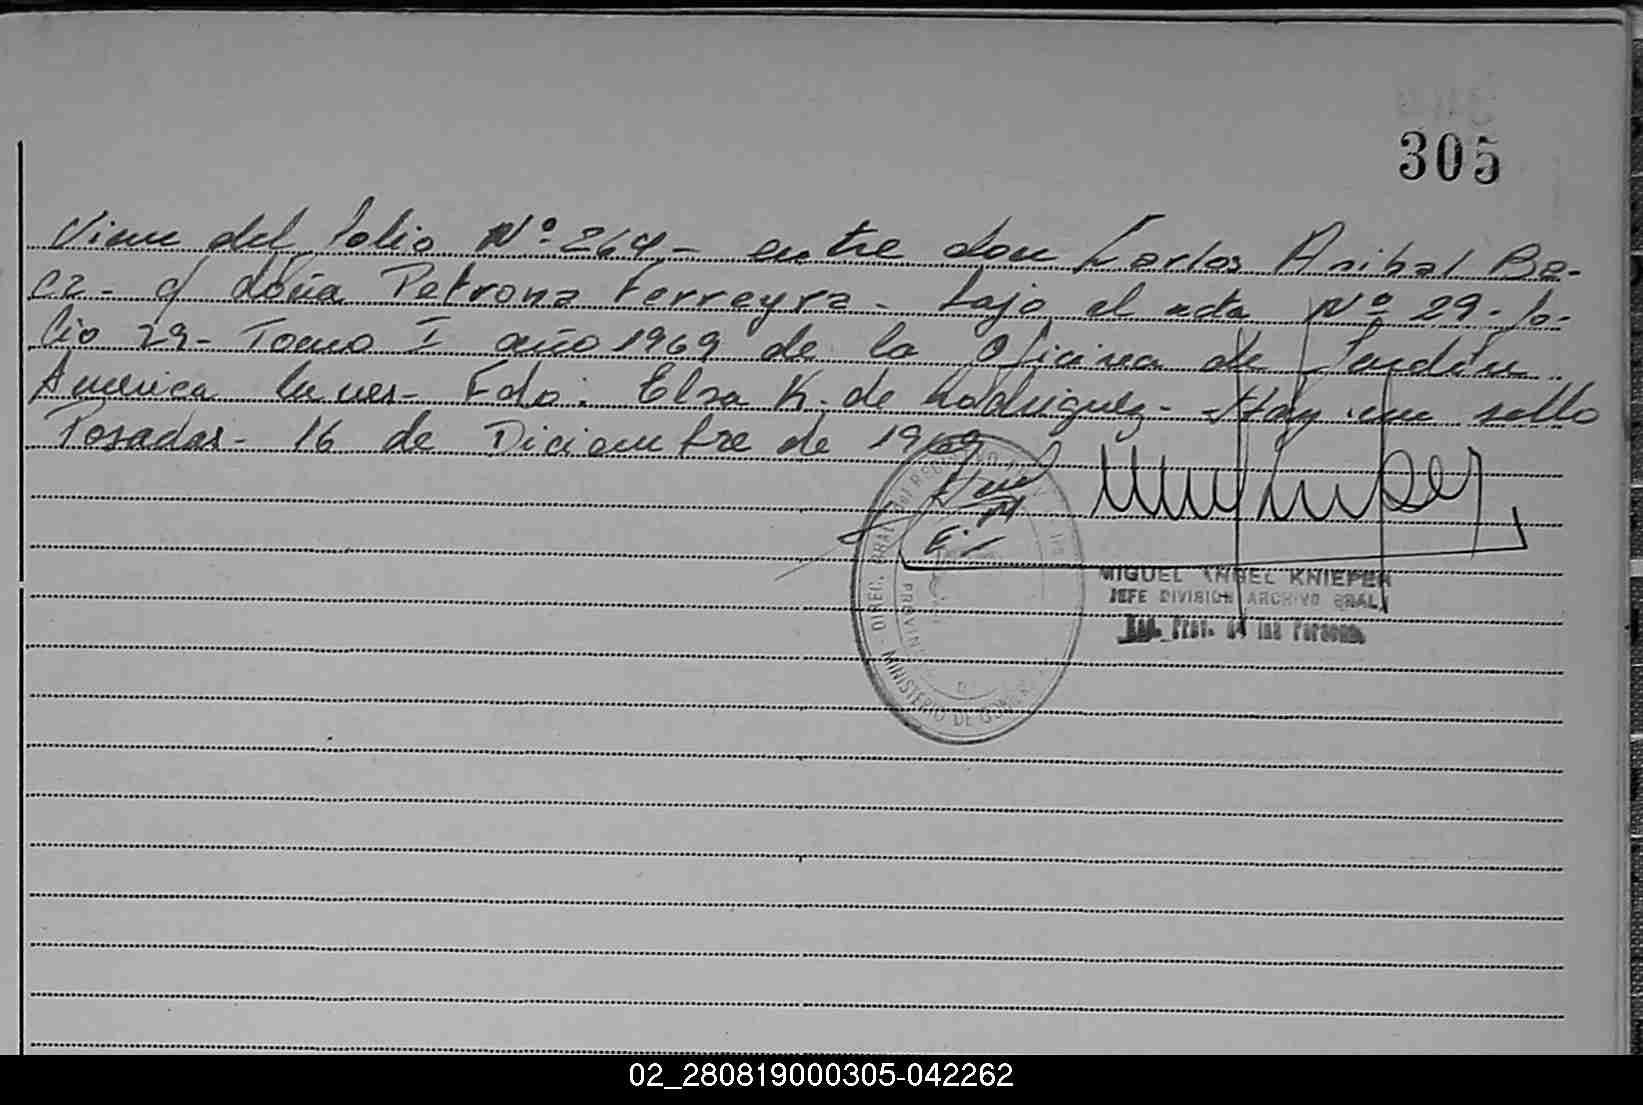 305
Viene del folio Nº 264- entre don Carlos Anibal Ba-
ez- y doña Petrona Ferreyra- bajo el acta Nº 29- fo-
lio 29- Tomo I año 1969 de la Oficina de Jardín
America Mnes- Fdo: Elsa K. de Rodriguez- Hay un sello
Posadas- 16 de Diciembre de 1969
MIGUEL ANGEL KNIEPER
JEFE DIVISION ARCHIVO GRAL
Prov. de las Personas
DIREC. GRAL. del REGISTRO
PROVINCIA
MINISTERIO DE GOBIERNO
02_280819000305-042262